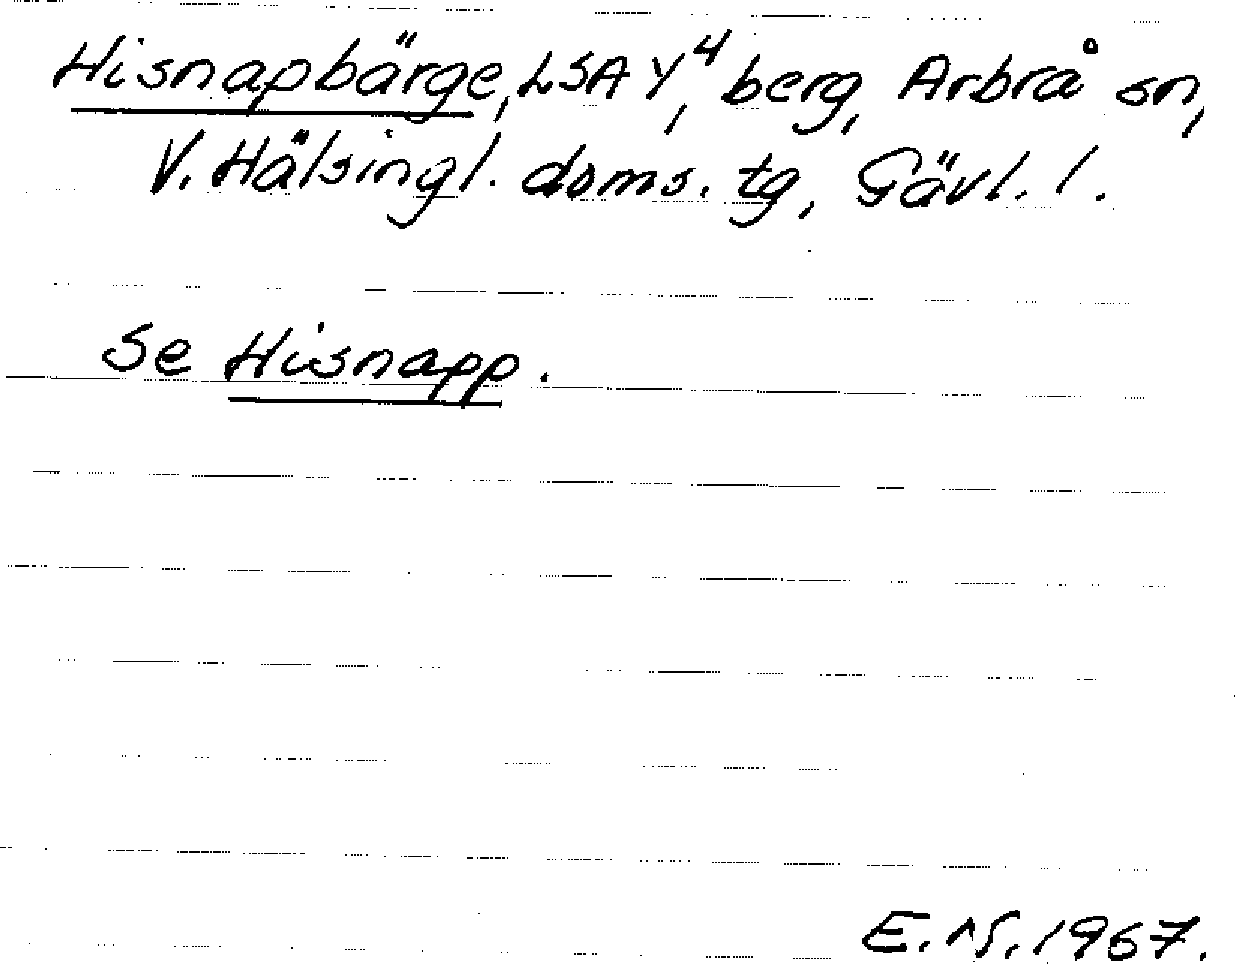 Hisnapbärge, LSA Y⁴, berg, Arbrå sn,
V. Hälsingl. doms. tg, Gävl. l.
Se Hisnapp.
E.N. 1967.